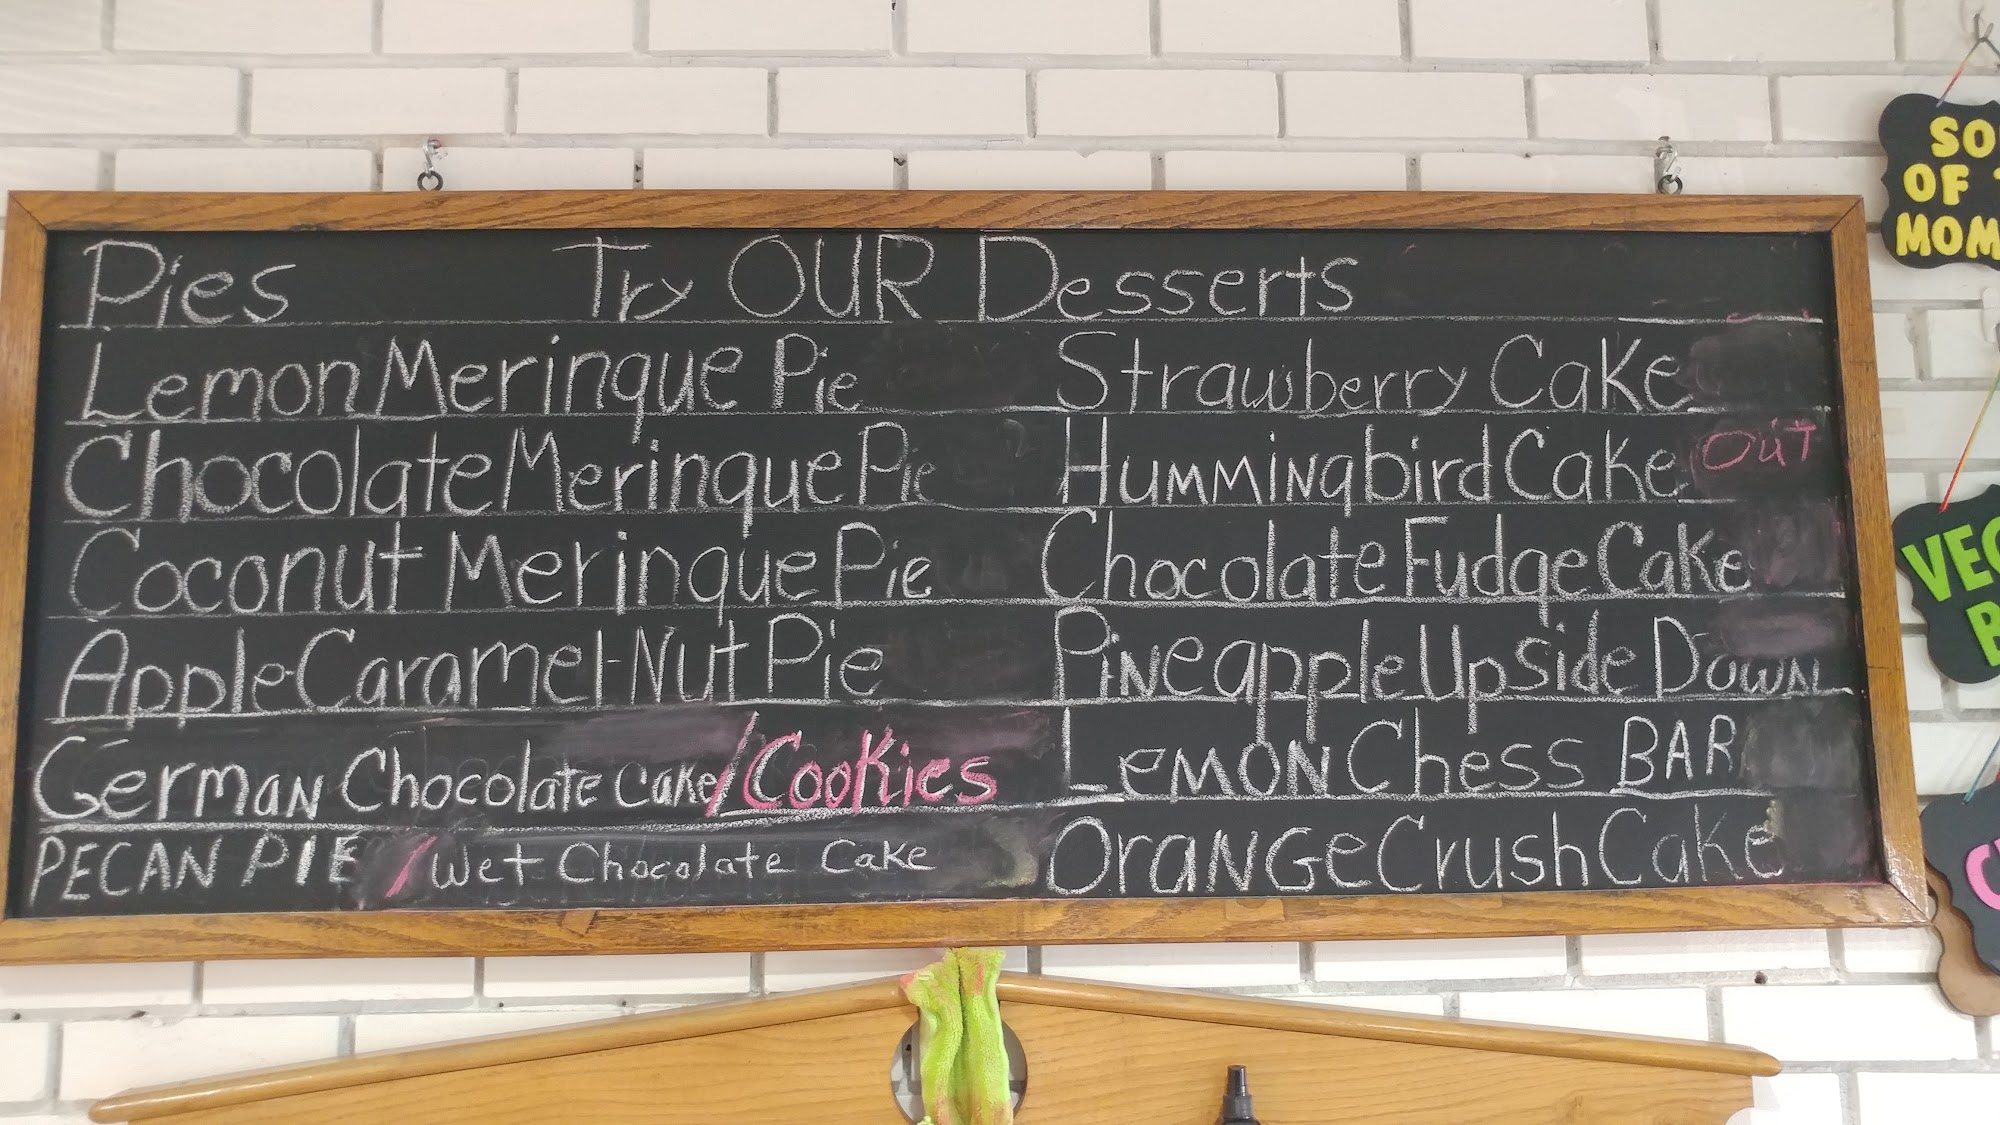 Pies Try OUR Desserts
Lemon Merinque Pie
Chocolate Merinque Pie
Coconut Merinque Pie
Apple-Caramel-Nut Pie
German Chocolate Cake/Cookies
PECAN PIE / Wet Chocolate Cake
Strawberry Cake
Hummingbird Cake OuT
Chocolate Fudge Cake
Pineapple Upside Down
Lemon Chess BAR
Orange Crush Cake
SO
OF
MOM
VEG
B
C